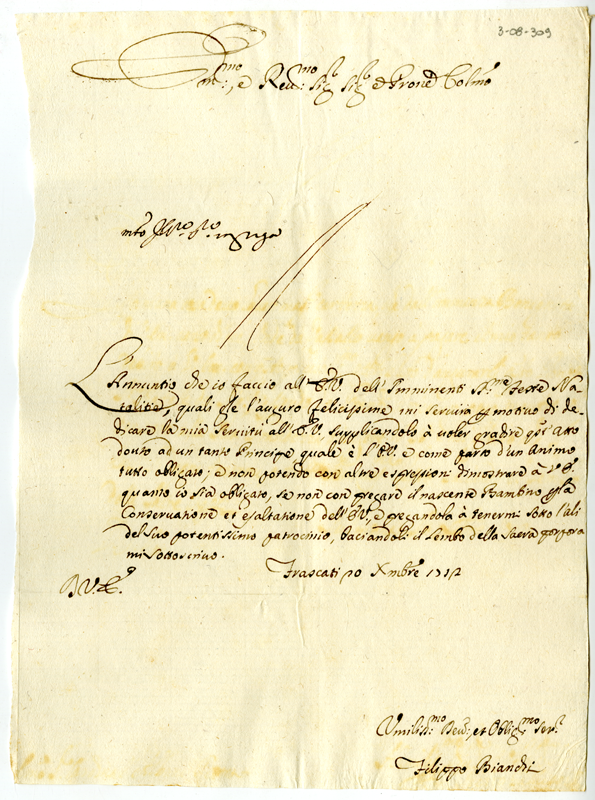 3-08-309
Em:mo, e Reu:mo Sig:r Sig:r e Pron Colmo
L'Annuntio che io faccio all'E.V. dell'Imminenti SS.me Feste Na-
talitie, quali le l'auguro felicissime mi seruirà motiuo di de-
dicare la mia seruitù all'E.V. supplicandolo à uoler gradire atto
douto ad un tanto Principe quale è l'E.V. e come parto d'un Animo
tutto obligato, e non potendo con altre espressioni dimostrare à
quanto io sia obligato, se non con pregare il nascente Bambino
Conseruatione et esaltatione dell'E.V., e pregandola à tenermi sotto l'ali
del suo potentissimo patrocinio, baciandoli il lembo della Sacra porpora
mi sottoscriuo.
Frascati 20 Xmbre 1712
Umiliss:mo Deu:, et Oblig:mo Ser:
Filippo Bianchi